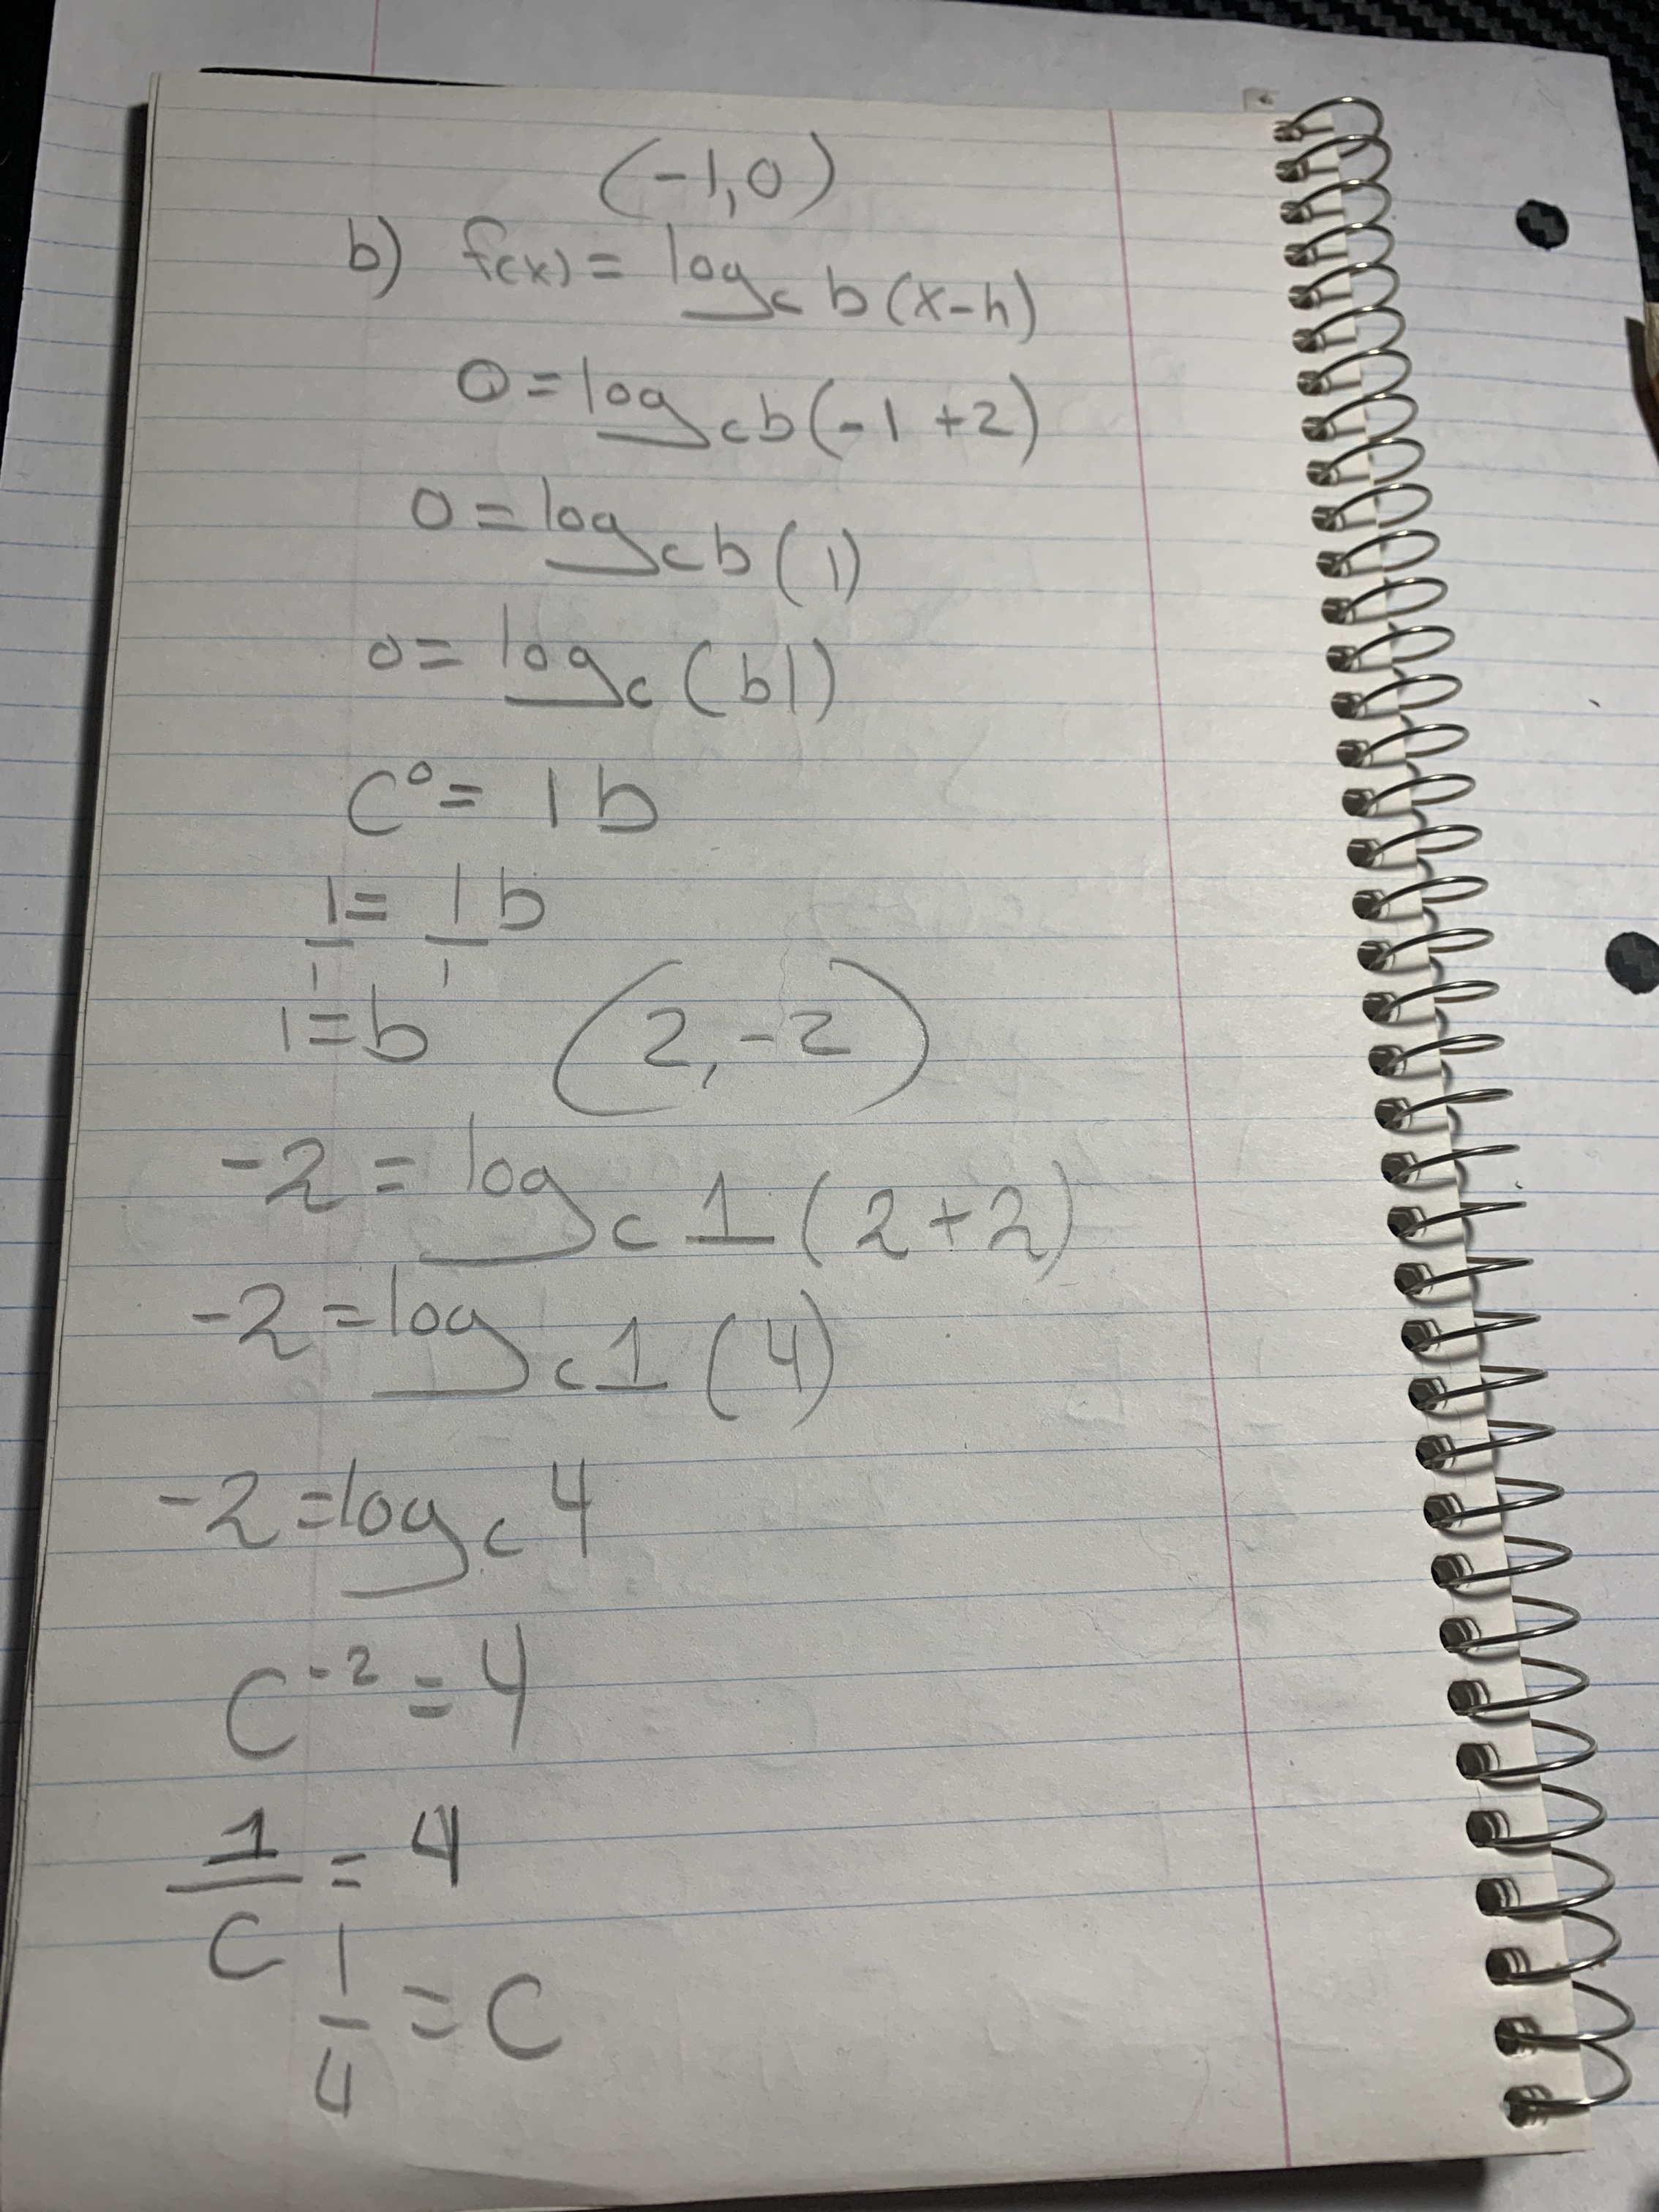 (-1,0)
b) f(x) = log_c b(x-h)
0 = log_c b(-1+2)
0 = log_c b(1)
0 = log_c (b1)
c⁰ = 1b
1/1 = 1b/1
1 = b (2,-2)
-2 = log_c 1(2+2)
-2 = log_c 1(4)
-2 = log_c 4
c⁻² = 4
1/c = 4
1/4 = c